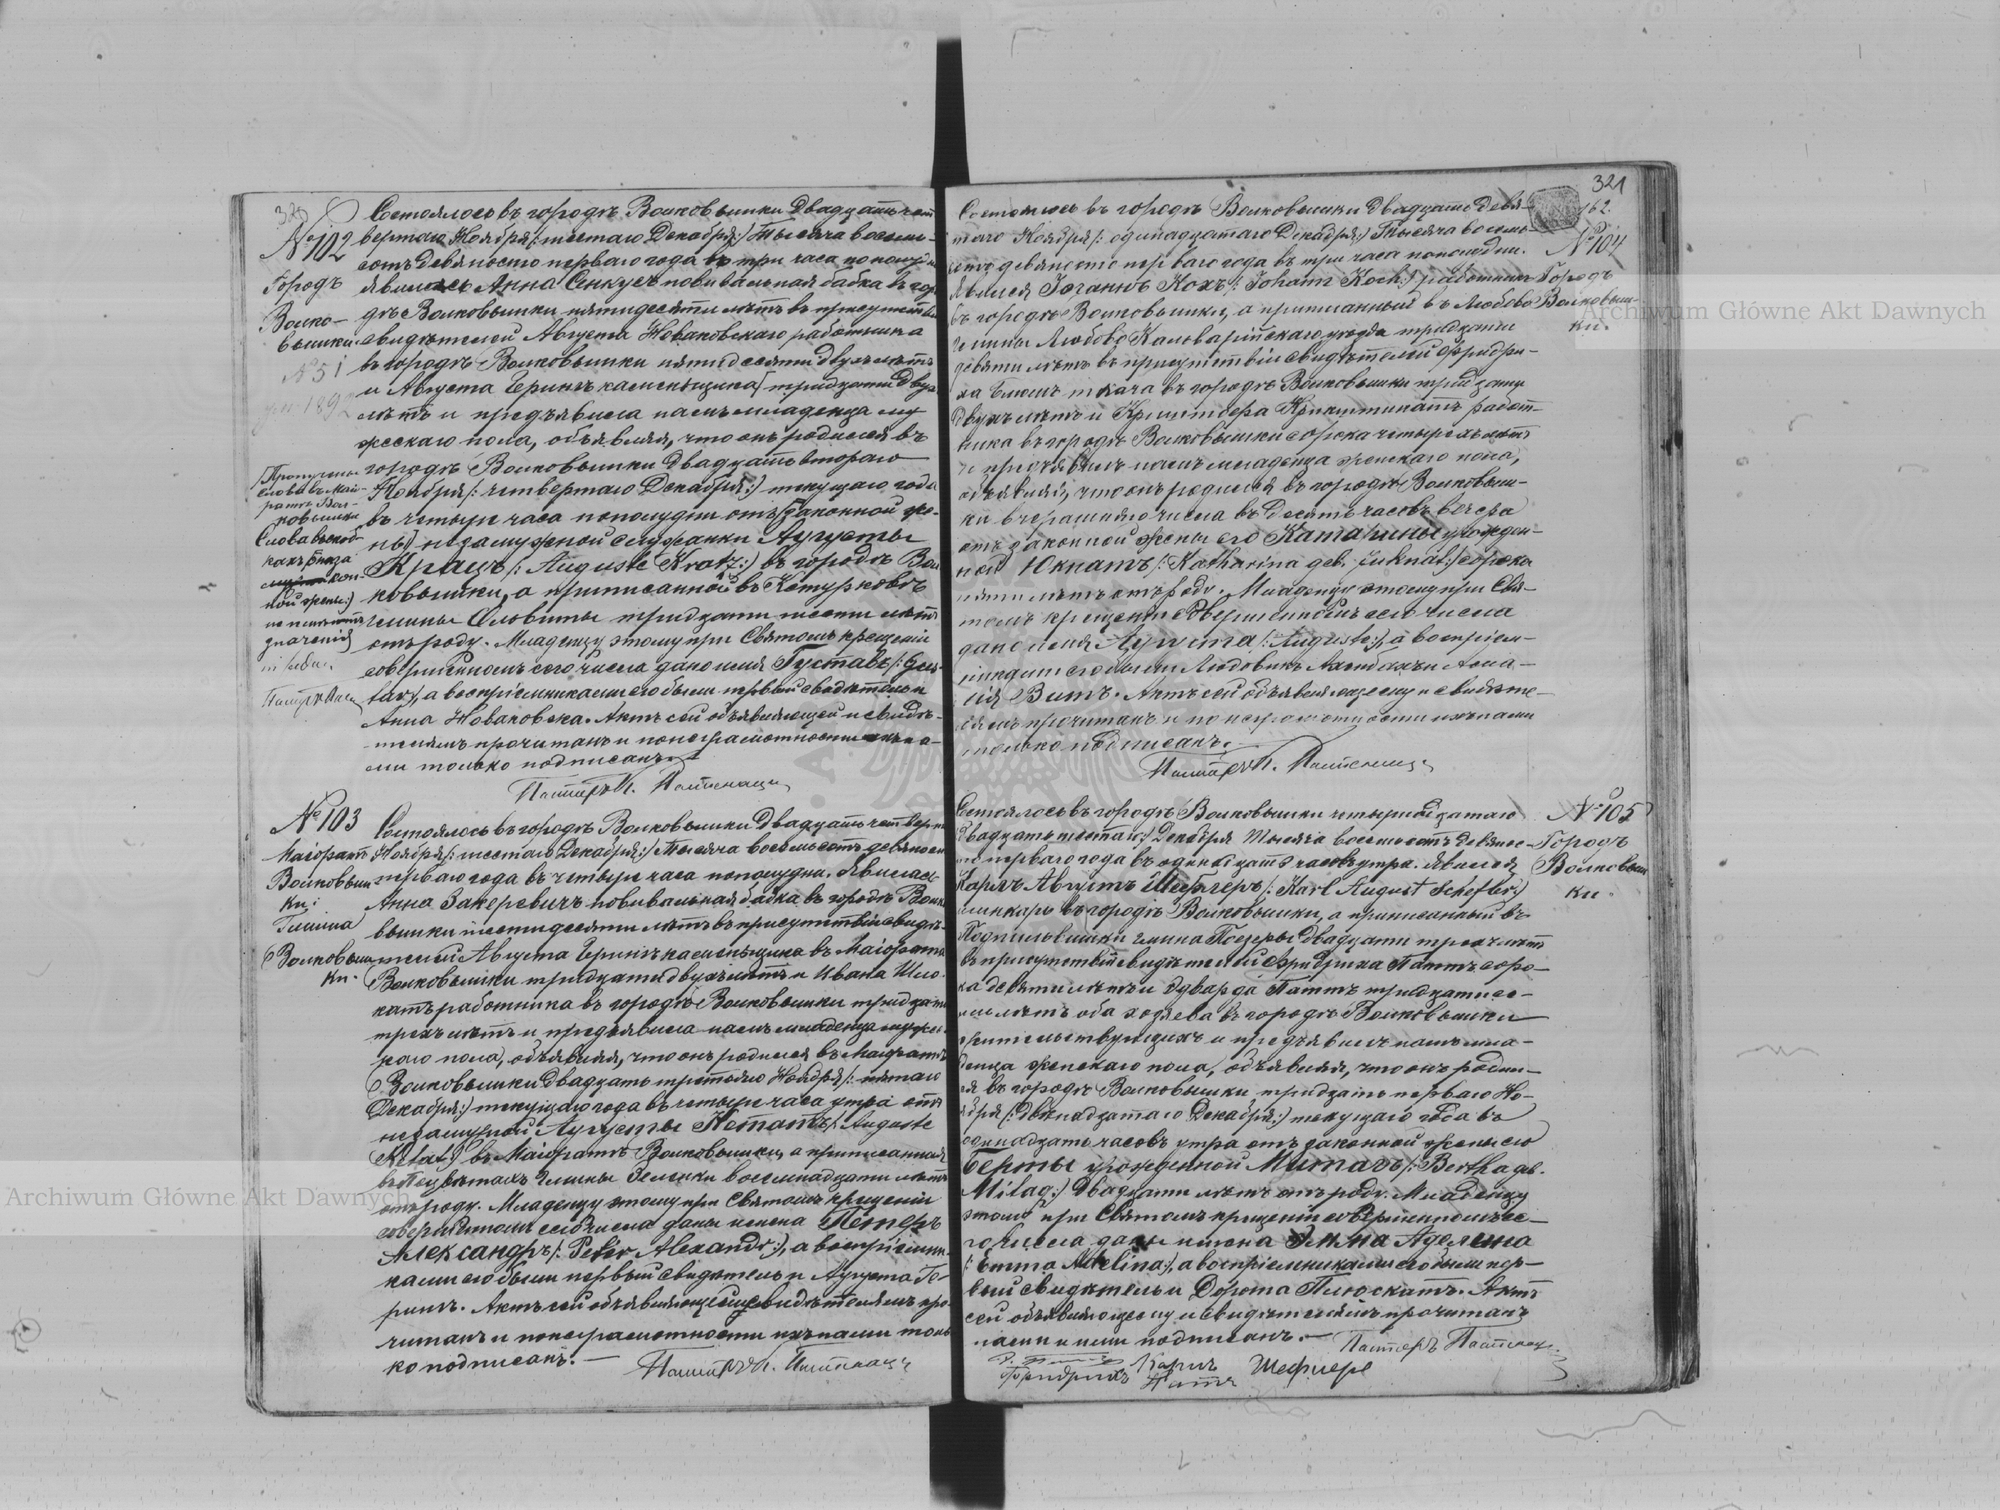 320
№ 102
Городъ
Волко-
вышки
№ 51
1892
Состоялось въ городѣ Волковышки двадцать чет
вертаго Ноября /: шестаго Декабря :/ тысяча восемь-
сотъ девяносто перваго года въ три часа пополудни
явилась Анна Сенкусъ повивальная бабка въ горо
дѣ Волковышки пятидесяти лѣтъ въ присутствіи
свидѣтелей Августа Новаковскаго работника
въ городѣ Волковышки пятидесяти двухъ лѣтъ
и Августа Герингъ каменьщика тридцати двухъ
лѣтъ и предъявила намъ младенца му
жескаго пола, объявляя, что онъ родился въ
городѣ Волковышки двадцать втораго
Ноября /: четвертаго Декабря :/ текущаго года
въ четыре часа пополудни отъ законной же-
ны незамужной служанки Августы
Крацъ /: Auguste Kratz :/ въ городѣ Вол
ковышки, а приписанной въ Кетурковъ
гмины Оловиты тридцати шести лѣтъ
отъ роду. Младенцу этому при Святомъ крещеніи
совершенномъ сего числа дано имя Густавъ /: Gus-
tav :/, а воспріемниками его были первый свидѣтель и
Анна Новаковска. Актъ сей объявляющей и свидѣ-
телямъ прочитанъ и по неграмотности ихъ на-
ми только подписанъ.
слова въ Маі-
ратѣ Вол-
ковышки
Слова въ скоб-
кахъ
ной жены :/
значенія
Пасторъ
№ 103
Маіоратъ
Волковыш
ки:
Гмина
Волковыш
ки.
Состоялось въ городѣ Волковышки двадцать четверт
Ноября /: шестаго Декабря :/ тысяча восемьсотъ девяносто
перваго года въ четыре часа пополудни. Явилась
Анна Закеревичъ повивальная бабка въ городѣ Волко
вышки шестидесяти лѣтъ въ присутствіи свидѣ-
телей Августа Герингъ каменьщика въ Маіоратѣ
Волковышки тридцати двухъ лѣтъ и Ивана Шло
катъ работника въ городѣ Волковышки тридцати
трехъ лѣтъ и предъявила намъ младенца мужес
каго пола, объявляя, что онъ родился въ Маіоратѣ
Волковышки двадцать третьяго Ноября /: пятаго
Декабря :/ текущаго года въ четыре часа утра отъ
незамужной Августы Нетатъ /: Auguste
Netat :/ въ Маіоратѣ Волковышки, а приписанная
гмины Зеленки восемнадцати лѣтъ
отъ роду. Младенцу этому при Святомъ крещеніи
совершенномъ сего числа даны имена Петеръ
Александръ /: Peter Alexandr :/, а воспріемни-
ками его были первый свидѣтель и Августа Ге-
рингъ. Актъ сей объявляющей и свидѣтелямъ про
читанъ и по неграмотности ихъ нами толь
ко подписанъ. —
321
162.
№ 104
Городъ
Волковыш-
ки.
Состоялось въ городѣ Волковышки двадцать девя-
таго Ноября /: одинадцатаго Декабря :/ тысяча восемь-
сотъ девяносто перваго года въ три часа пополудни.
Явился Іоганъ Кохъ /: Johann Koch :/ работникъ
въ городѣ Волковышки, а приписанный въ Любово
гмины Любово Кальварійскаго уѣзда тридцати
девяти лѣтъ въ присутствіи свидѣтелей Фридри-
ха Блюмъ ткача въ городѣ Волковышки тридцати
двухъ лѣтъ и работ-
ника въ городѣ Волковышки сорока четырехъ лѣтъ
и предъявилъ намъ младенца женскаго пола,
объявляя, что онъ родился въ городѣ Волковыш-
ки вчерашняго числа въ десять часовъ вечера
отъ законной жены его Катарины урожден-
ной Юкнатъ /: Katharina geb. Juknat :/ сорока
пяти лѣтъ отъ роду. Младенцу этому при Свя-
томъ крещеніи совершенномъ сего числа
дано имя Августа /: Auguste :/, а воспріем-
никами его были Людовикъ и Ама-
лія Витъ. Актъ сей объявляющему и свидѣте-
лямъ прочитанъ и по неграмотности ихъ нами
только подписанъ.
№ 105
Городъ
Волковыш
ки.
Состоялось въ городѣ Волковышки четырнадцатаго
/: двадцать шестаго :/ Декабря тысяча восемьсотъ девянос-
то перваго года въ одинадцать часовъ утра. Явился
Карлъ Августъ Шефлеръ /: Karl August Schefler :/
въ городѣ Волковышки, а приписанный въ
гмина Поезеры двадцати трехъ лѣтъ
въ присутствіи свидѣтелей Фридриха Паттъ соро-
ка девяти лѣтъ и Эдварда Паттъ тридцати се-
ми лѣтъ оба хозяева въ городѣ Волковышки
жительствующихъ и предъявилъ намъ мла-
денца женскаго пола, объявляя, что онъ родил-
ся въ городѣ Волковышки тридцать перваго Но-
ября /: двѣнадцатаго Декабря :/ текущаго года въ
одинадцать часовъ утра отъ законной жены его
Берты урожденной Милагъ /: Bertha geb.
Milag :/ двадцати лѣтъ отъ роду. Младенцу
этому при Святомъ крещеніи совершенномъ се-
го числа даны имена Эмма Аделина
/: Emma Adelina :/, а воспріемниками его были пер-
вый свидѣтель и Дорота Плюскатъ. Актъ
сей объявляющему и свидѣтелямъ прочитанъ
нами и ими подписанъ. —
Фридрихъ Карлъ Шефлеръ
Паттъ
Archiwum Główne Akt Dawnych
Archiwum Główne Akt Dawnych